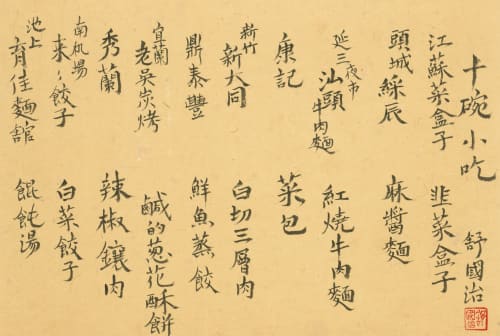 十碗小吃
舒國治
江蘇菜盒子 韭菜盒子
頭城綵辰 麻醬麵
延三夜市 汕頭牛肉麵 紅燒牛肉麵
康記 菜包
新竹 新大同 白切三層肉
鼎泰豐 鮮魚蒸餃
宜蘭 老吳炭烤 鹹的蔥花酥餅
秀蘭 辣椒鑲肉
南机場 來來餃子 白菜餃子
池上 育佳麵館 餛飩湯